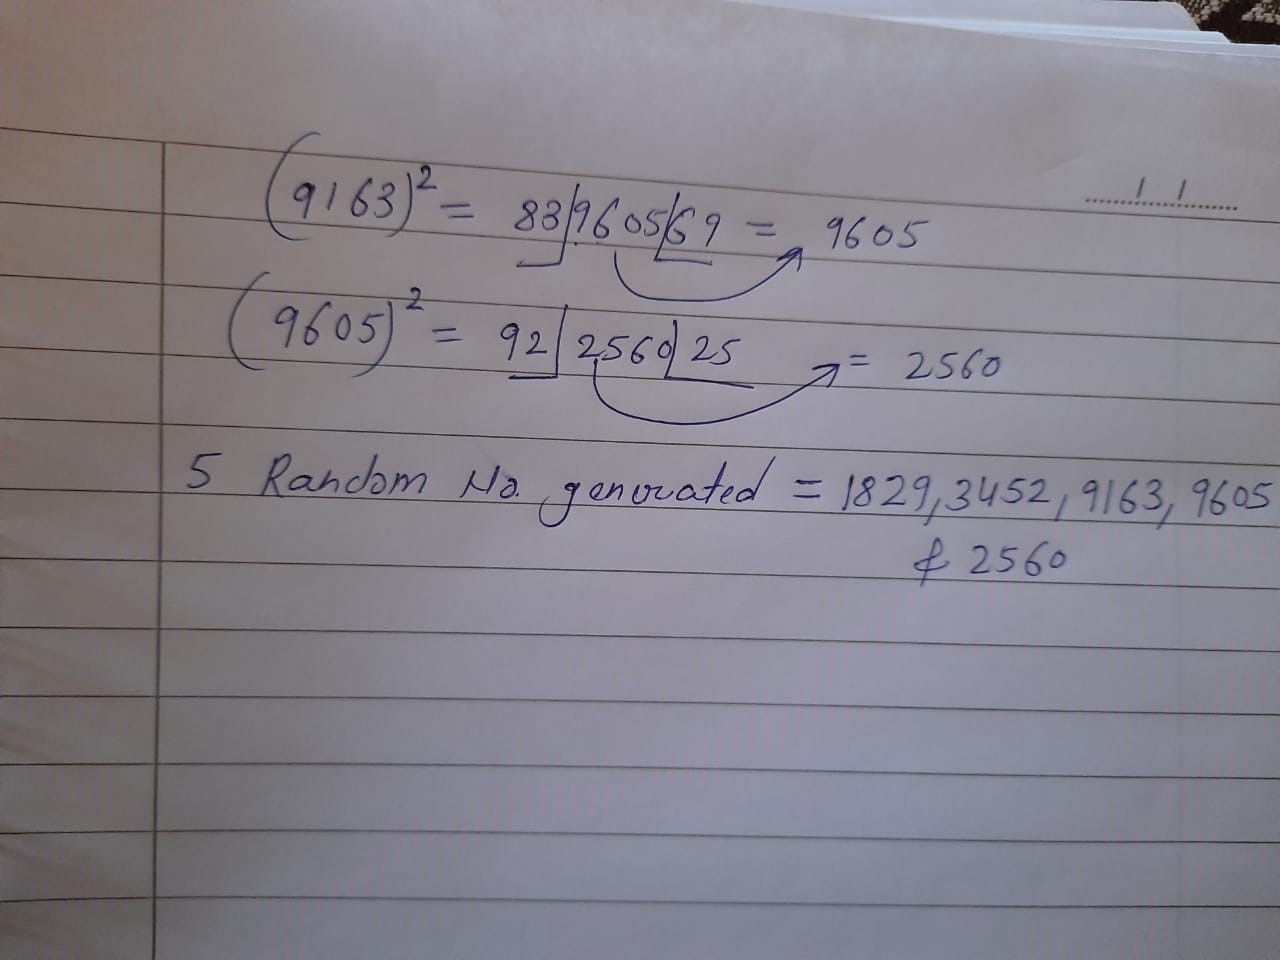 (9163)² = 83|9605|69 = 9605
(9605)² = 92|2560|25 = 2560
5 Random No. generated = 1829, 3452, 9163, 9605
& 2560